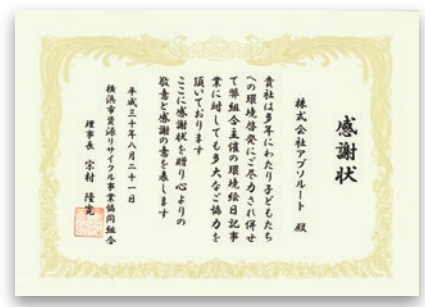 感謝状
株式会社アブソルート 殿
貴社は多年にわたり子どもたち
への環境啓発にご尽力され併せ
て弊組合主催の環境絵日記事
業に対しても多大なご協力を
頂いております
ここに感謝状を贈り心よりの
敬意と感謝の意を表します
平成三十年八月二十一日
横浜市資源リサイクル事業協同組合
理事長 宗村 隆寛